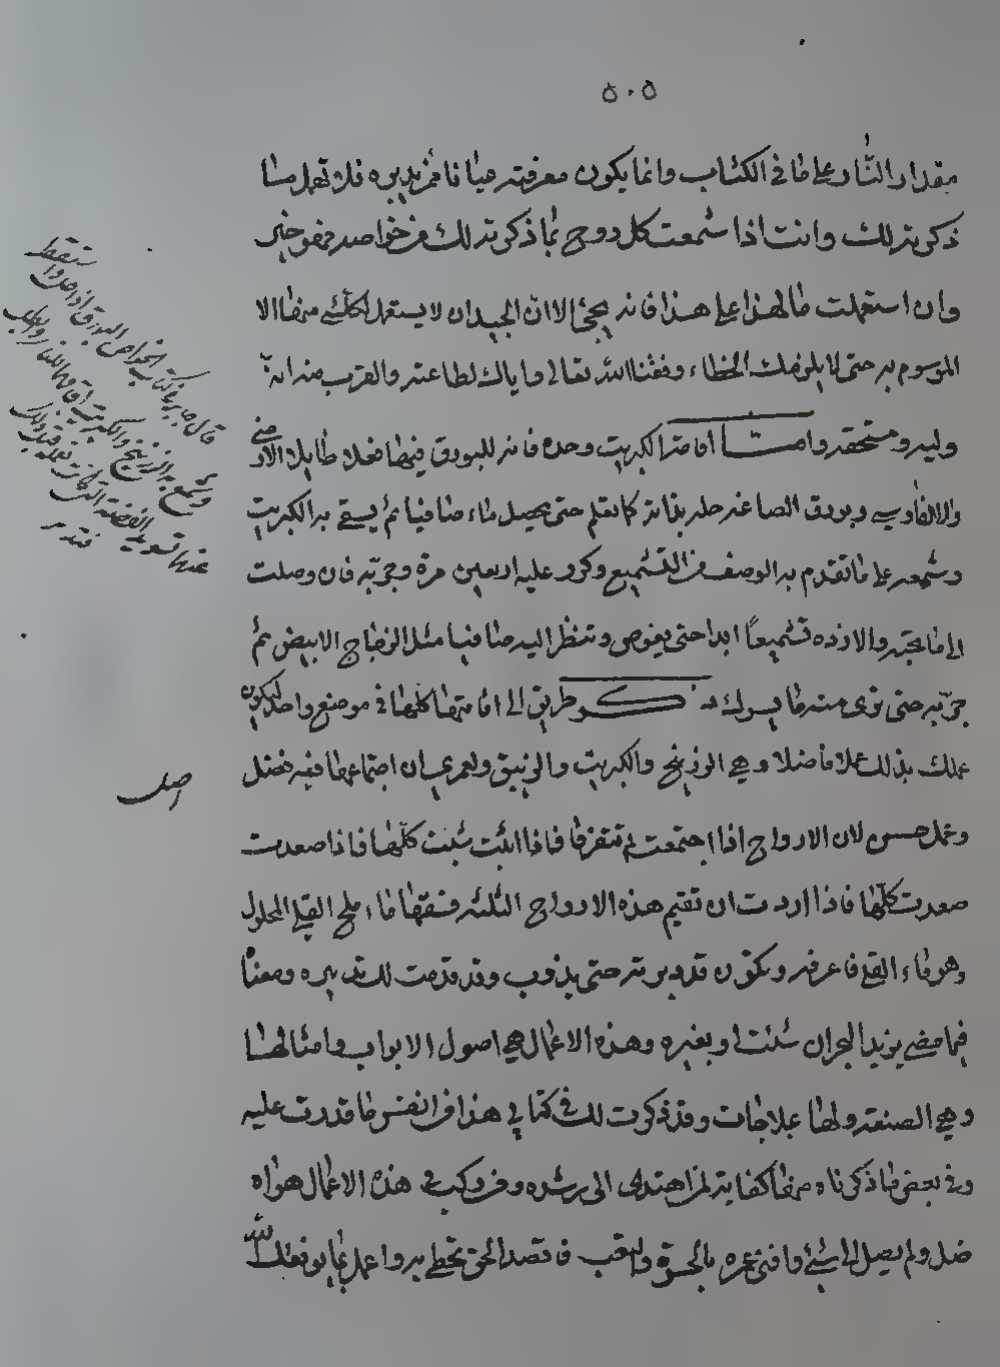 ٥٠٥
مقدار النار على ما في الكتاب وانما يكون معرفته عيانا فمن يدبره فلا تهمل مما
ذكرته لك وانت اذا شمعت كل روح بما ذكرته لك من خواصه فهو خير
وان استعملت ما لهذا على هذا فانه يجئ الا ان الجيد ان لا يستعمل لكل شئ منها الا
الموسوم به حتى لا يلزمك الخطاء وفقنا الله تعالى واياك لطاعته والقرب منه انه
وليه ومستحقه واما اقامة الكبريت وحده فانه للبورق فيها فعلا طايلا الارضى
والالفارسي وبورق الصاغة حله بذاته كما تعلم حتى يحصل ماء صافيا ثم يسقى به الكبريت
وشمعه على ما تقدم به الوصف من التشميع وكرر عليه اربعين مرة وجربه فان وصلت
الى ما تحبه والا زده تشميعاً ابدا حتى يغوص وتنظر اليه صافيا مثل الزجاج الابيض ثم
جربه حتى ترى منه ما يسرك به ذكر طريق الى اقامتها كلها في موضع واحد ليكون
عملك بذلك عملا فاضلا وهي الزرنيخ والكبريت والزيبق ولعمرى ان اجتماعها فيه فضل
وعمل حسن لان الارواح اذا اجتمعت لم تتفرق فاذا اثبتت ثبتت كلها فاذا صعدت
صعدت كلها فاذا اردت ان تقيم هذه الارواح الثلثه فسقها ماء ملح القلي المحلول
وهو ماء القلي فاعرفه ويكون قد دبرته حتى يذوب وقد قدمت لك تدبيره وصفنا
فيما مضى يزيد البحران شئت او بغيره وهذه الاعمال هي اصول الابواب وامثالها
وهي الصنعة ولها علاجات وقد ذكرت لك في كتابي هذا من النفس ما قدرت عليه
وفي بعض ما ذكرناه منها كفاية لمن اهتدى الى رشده ومن ركب في هذه الاعمال هواه
ضل ولم يصل الى شئ وافنى عمره بالحسرة والتعب فاقصد الحق تحظى به واعمل بما يوفقك الله
قال جابر في كتاب الخواص البورق اذا حل و
تشمع به الزرنيخ والكبريت اقامها للنار
الفضة
فتدبر
اصل